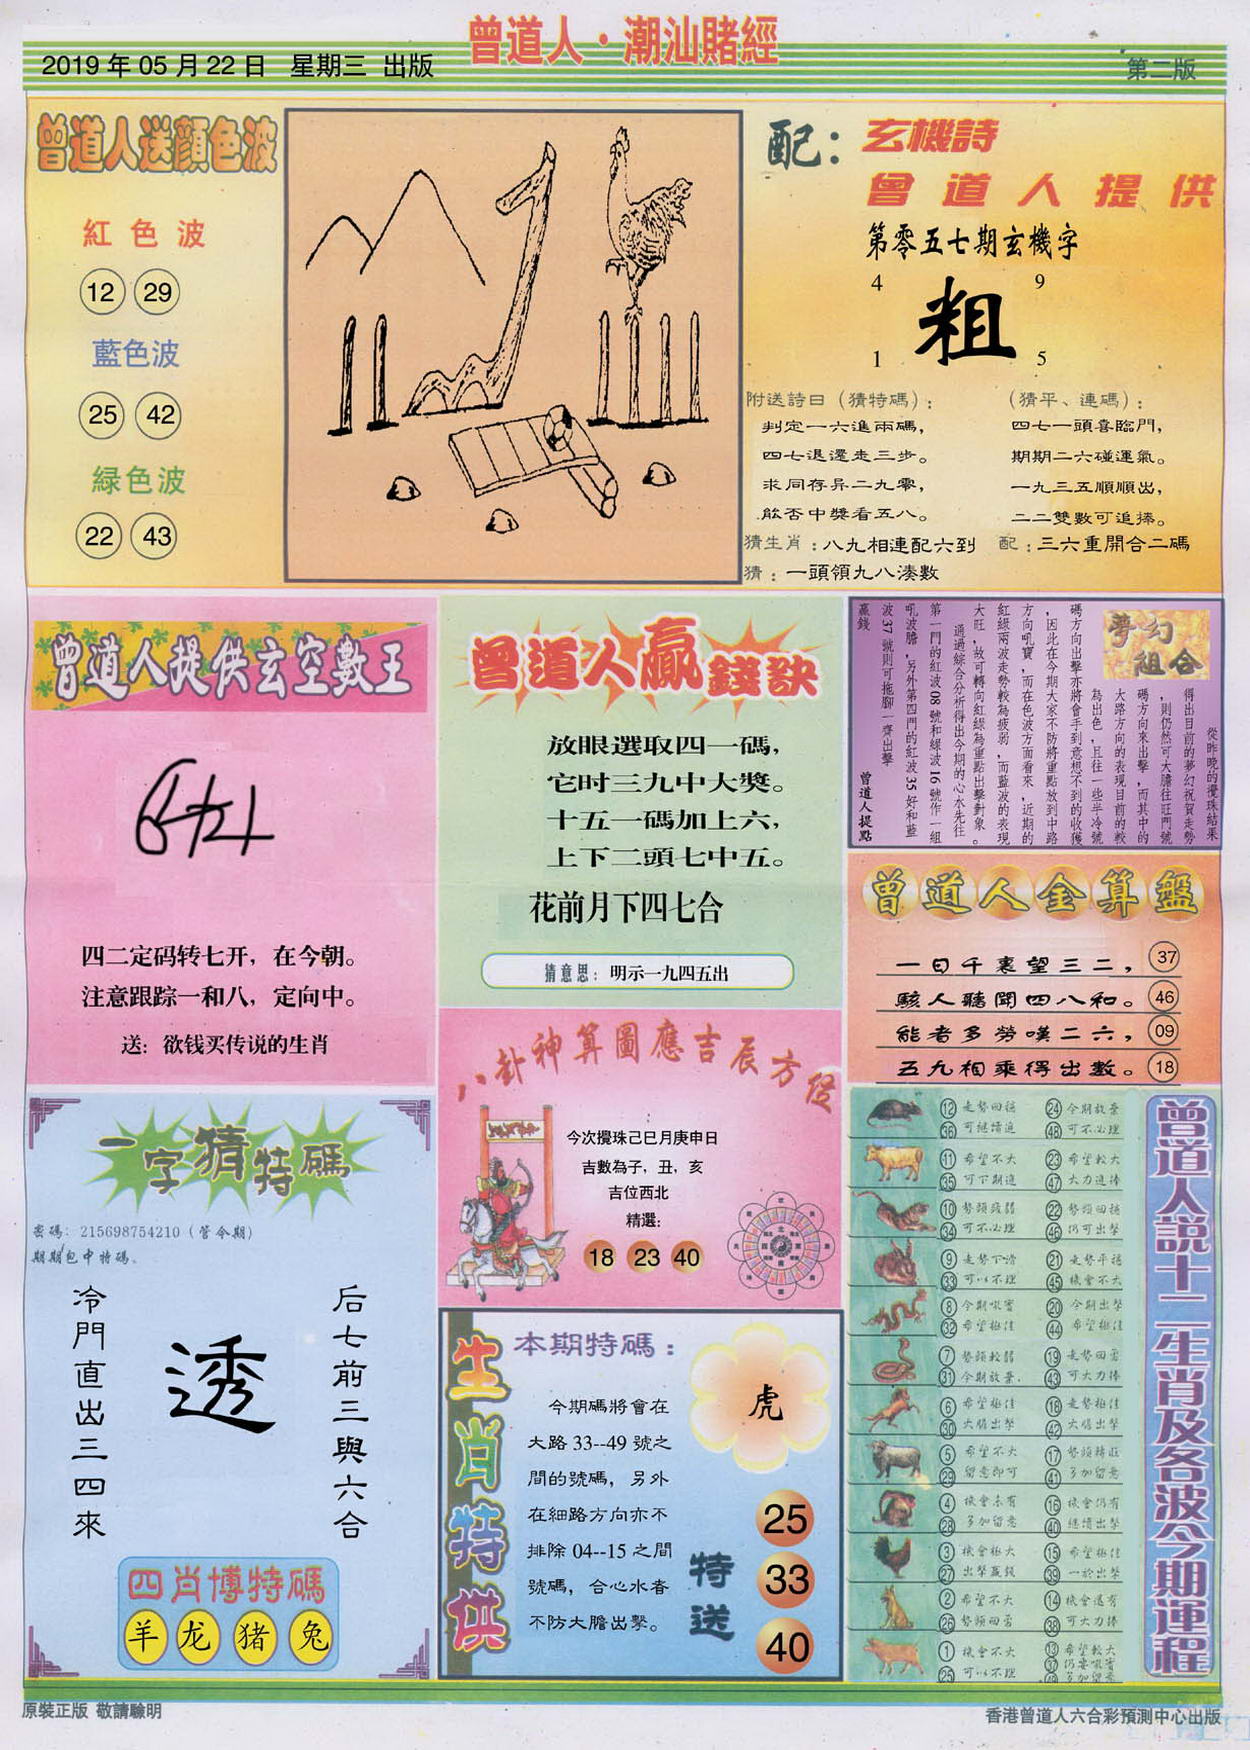 曾道人·潮汕賭經
2019 年 05 月 22 日 星期三 出版
第二版
曾道人送顏色波
紅色波
12 29
藍色波
25 42
緑色波
22 43
配：玄機詩
曾道人提供
第零五七期玄機字
4 9
粗
1 5
附送詩曰（猜特碼）：
判定一六進兩碼，
四七退還走三步。
求同存异二九零，
能否中獎看五八。
（猜平、連碼）：
四七一頭喜臨門，
期期二六碰運氣。
一九三五順順出，
二二雙數可追捧。
猜生肖：八九相連配六到
配：三六重開合二碼
猜：一頭領九八湊數
曾道人提供玄空數王
四二定码转七开，在今朝。
注意跟踪一和八，定向中。
送：欲钱买传说的生肖
曾道人贏錢訣
放眼選取四一碼，
它时三九中大獎。
十五一碼加上六，
上下二頭七中五。
花前月下四七合
猜意思：明示一九四五出
夢幻組合
從昨晚的攪珠結果
得出目前的夢幻祝賀走勢
，則仍然可大膽往旺門號
碼方向來出擊，而其中的
大路方向的表現目前的較
為出色，且往一些半冷號
碼方向出擊亦將會手到意想不到的收獲
，因此在今期大家不防將重點放到中路
方向吼寶，而在色波方面看來，近期的
紅緑兩波走勢較為疲弱，而藍波的表現
大旺，故可轉向紅緑為重點出擊對象。
通過綜合分析得出今期的心水先往
第一門的紅波 08 號和緑波 16 號作一組
吼波膽，另外第四門的紅波 35 好和藍
波 37 號則可拖腳一齊出擊
贏錢
曾道人提點
曾道人金算盤
一日千裏望三二， 37
駭人聽聞四八和。 46
能者多勞嘆二六， 09
五九相乘得出數。 18
一字猜特碼
密碼：215698754210（管令期）
期期包中特碼。
冷門直出三四來
透
后七前三與六合
四肖博特碼
羊 龙 猪 兔
八卦神算圖應吉辰方位
今次攪珠己巳月庚申日
吉數為子，丑，亥
吉位西北
精選：
18 23 40
生肖特供
本期特碼：
虎
今期碼將會在
大路 33--49 號之
間的號碼，另外
在細路方向亦不
排除 04--15 之間
號碼，合心水者
不防大膽出擊。
特送
25
33
40
曾道人説十二生肖及各波今期運程
12 走勢回穩 24 今期放棄
36 可繼續追 48 可不必理
11 希望不大 23 希望較大
35 可下期追 47 大力追捧
10 勢頭疲弱 22 勢頭回穩
34 可不必理 46 仍可出擊
9 走勢下滑 21 走勢平穩
33 可以不理 45 機會不大
8 今期吼寶 20 今期出擊
32 希望極佳 44 希望極佳
7 勢頭較弱 19 走勢回雲
31 今期放棄. 43 可大力捧
6 希望極佳 18 走勢極佳
30 大膽出擊 42 大膽出擊
5 希望不大 17 勢頭轉旺
29 留意即可 41 多加留意
4 機會未有 16 機會仍有
28 多加留意 40 繼續出擊
3 機會極大 15 希望極佳
27 出擊贏錢 39 一於出擊
2 希望不大 14 機會還有
26 勢頭回雲 38 可大力捧
1 機會不大 13 希望較大
25 可以不理 37 仍要吼寶
49 多加留意
原裝正版 敬請驗明
香港曾道人六合彩預測中心出版